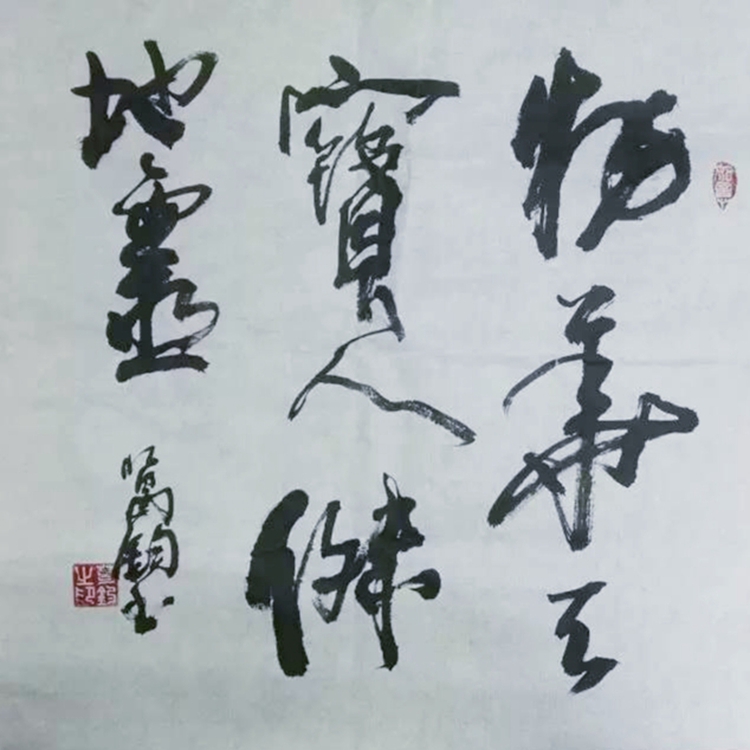 物華天
寶人傑
地靈